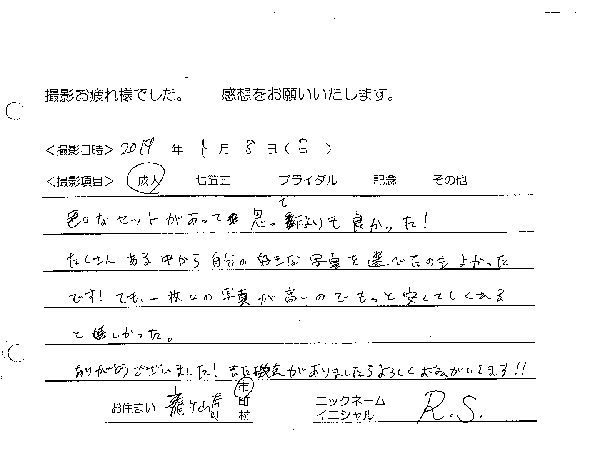 撮影お疲れ様でした。 感想をお願いいたします。
<撮影日時> 2017 年 1 月 8 日(日)
<撮影項目> 成人 七五三 ブライダル 記念 その他
色々なセットがあって 思って よりも良かった!
たくさんある中から自分の好きな写真を選べたのもよかった
です!でも、一枚々の写真が高いのでもっと安くしてくれる
と嬉しかった。
ありがとうございました!また機会がありましたらよろしくおねがいします!!
お住まい 龍ケ崎 市 町 村 ニックネーム イニシャル R.S.